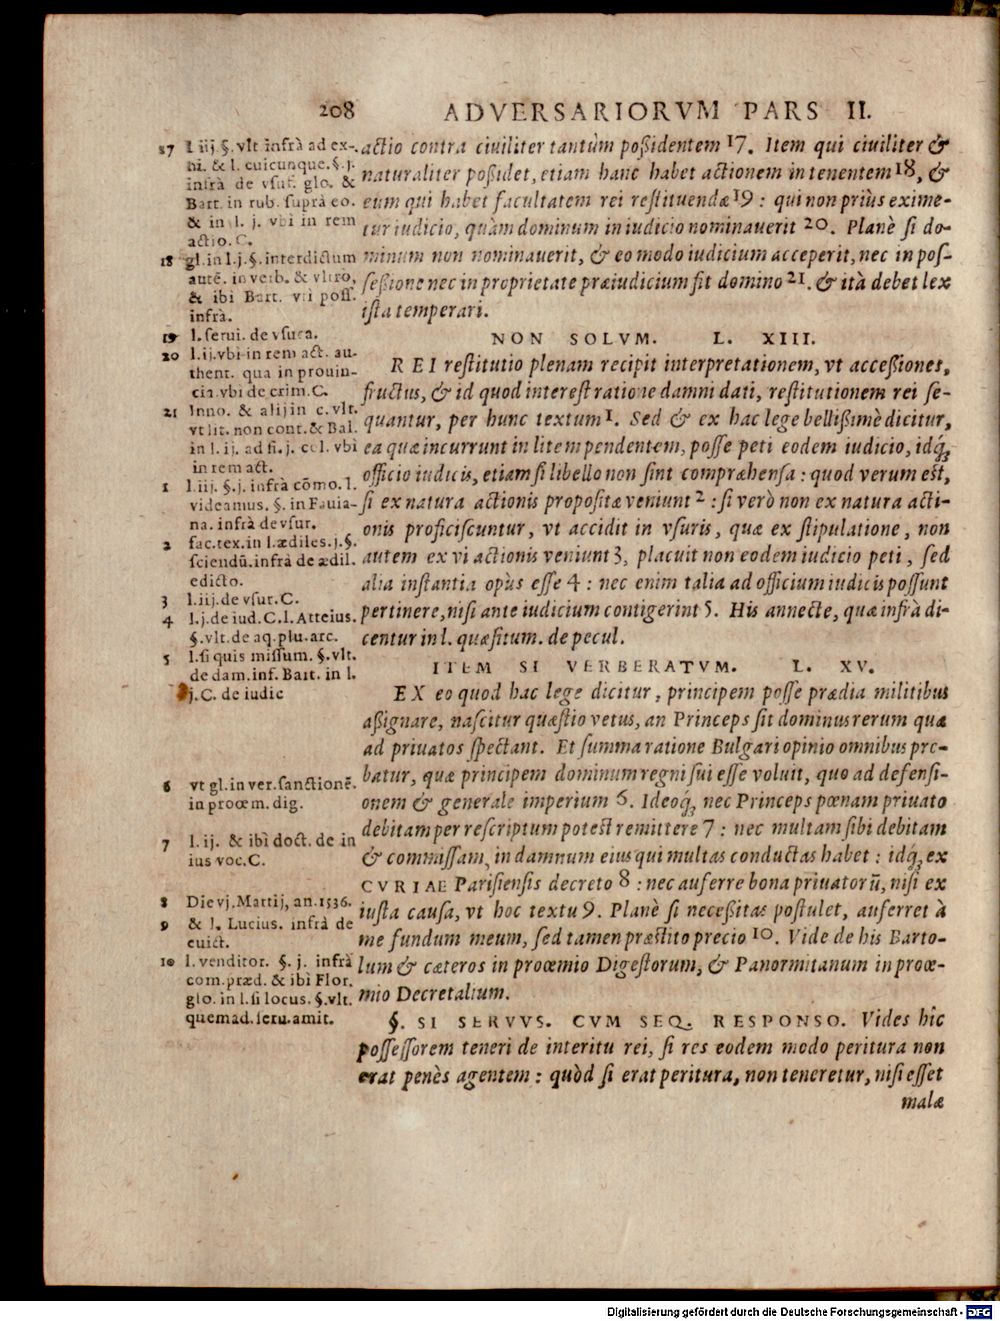 208 ADVERSARIORVM PARS II.
actio contra ciuiliter tantùm poßidentem 17. Item qui ciuiliter &
naturaliter poßidet, etiam hanc habet actionem in tenentem 18, &
eum qui habet facultatem rei restituendæ 19 : qui non priùs exime-
tur iudicio, quàm dominum in iudicio nominauerit 20. Planè si do-
minum non nominauerit, & eo modo iudicium acceperit, nec in pos-
seßione nec in proprietate præiudicium fit domino 21. & ità debet lex
ista temperari.
NON SOLVM. L. XIII.
REI restitutio plenam recipit interpretationem, vt acceßiones,
fructus, & id quod interest ratione damni dati, restitutionem rei se-
quantur, per hunc textum 1. Sed & ex hac lege bellißimè dicitur,
ea quæ incurrunt in litem pendentem, posse peti eodem iudicio, idq́;
officio iudicis, etiam si libello non sint compræhensa : quod verum est,
si ex natura actionis propositæ veniunt 2 : si verò non ex natura acti-
onis proficiscuntur, vt accidit in vsuris, quæ ex stipulatione, non
autem ex vi actionis veniunt 3, placuit non eodem iudicio peti, sed
alia instantia opùs esse 4 : nec enim talia ad officium iudicis possunt
pertinere, nisi ante iudicium contigerint 5. His annecte, quæ infrà di-
centur in l. quæsitum. de pecul.
ITEM SI VERBERATVM. L. XV.
EX eo quod hac lege dicitur, principem posse prædia militibus
aßignare, nascitur quæstio vetus, an Princeps sit dominus rerum quæ
ad priuatos spectant. Et summa ratione Bulgari opinio omnibus pro-
batur, quæ principem dominum regni sui esse voluit, quo ad defensi-
onem & generale imperium 6. Ideoq́; nec Princeps pœnam priuato
debitam per rescriptum potest remittere 7 : nec multam sibi debitam
& commissam, in damnum eius qui multas conductas habet : idq́; ex
CVRIAE Parisiensis decreto 8 : nec auferre bona priuatorū, nisi ex
iusta causa, vt hoc textu 9. Planè si neceßitas postulet, auferret à
me fundum meum, sed tamen præstito precio 10. Vide de his Barto-
lum & cæteros in proœmio Digestorum, & Panormitanum in proœ-
mio Decretalium.
§. SI SERVVS. CVM SEQ. RESPONSO. Vides hîc
possessorem teneri de interitu rei, si res eodem modo peritura non
erat penès agentem : quòd si erat peritura, non teneretur, nisi esset
malæ
17 l iij. §. vlt infrà ad ex-
hi. & l. cuicunque. §. j.
infrà de vsuf. glo. &
Bart. in rub. suprà eo.
& in l. j. vbi in rem
actio. C.
18 gl. in l. j. §. interdictum
autē. in verb. & vltrò,
& ibi Bart. vti poss.
infrà.
19 l. serui. de vsura.
20 l. ij. vbi in rem act. au-
thent. qua in prouin-
cia vbi de crim. C.
21 Inno. & alij in c. vlt.
vt lit. non cont. & Bal.
in l. ij. ad fi. j. col. vbi
in rem act.
1 l. iij. §. j. infrà cōmo. l.
videamus. §. in Fauia-
na. infrà de vsur.
2 fac. tex. in l. ædiles. j. §.
sciendū. infrà de ædil.
edicto.
3 l. iij. de vsur. C.
4 l. j. de iud. C. l. Atteius.
§. vlt. de aq. plu. arc.
5 l. si quis missum. §. vlt.
de dam. inf. Bart. in l.
j. C. de iudic
6 vt gl. in ver. sanctionē.
in proœm. dig.
7 l. ij. & ibi doct. de in
ius voc. C.
8 Die vj. Martij, an. 1536.
9 & l. Lucius. infrà de
euict.
10 l. venditor. §. j. infrà
com. præd. & ibi Flor.
glo. in l. si locus. §. vlt.
quemad. seru. amit.
Digitalisierung gefördert durch die Deutsche Forschungsgemeinschaft - DFG